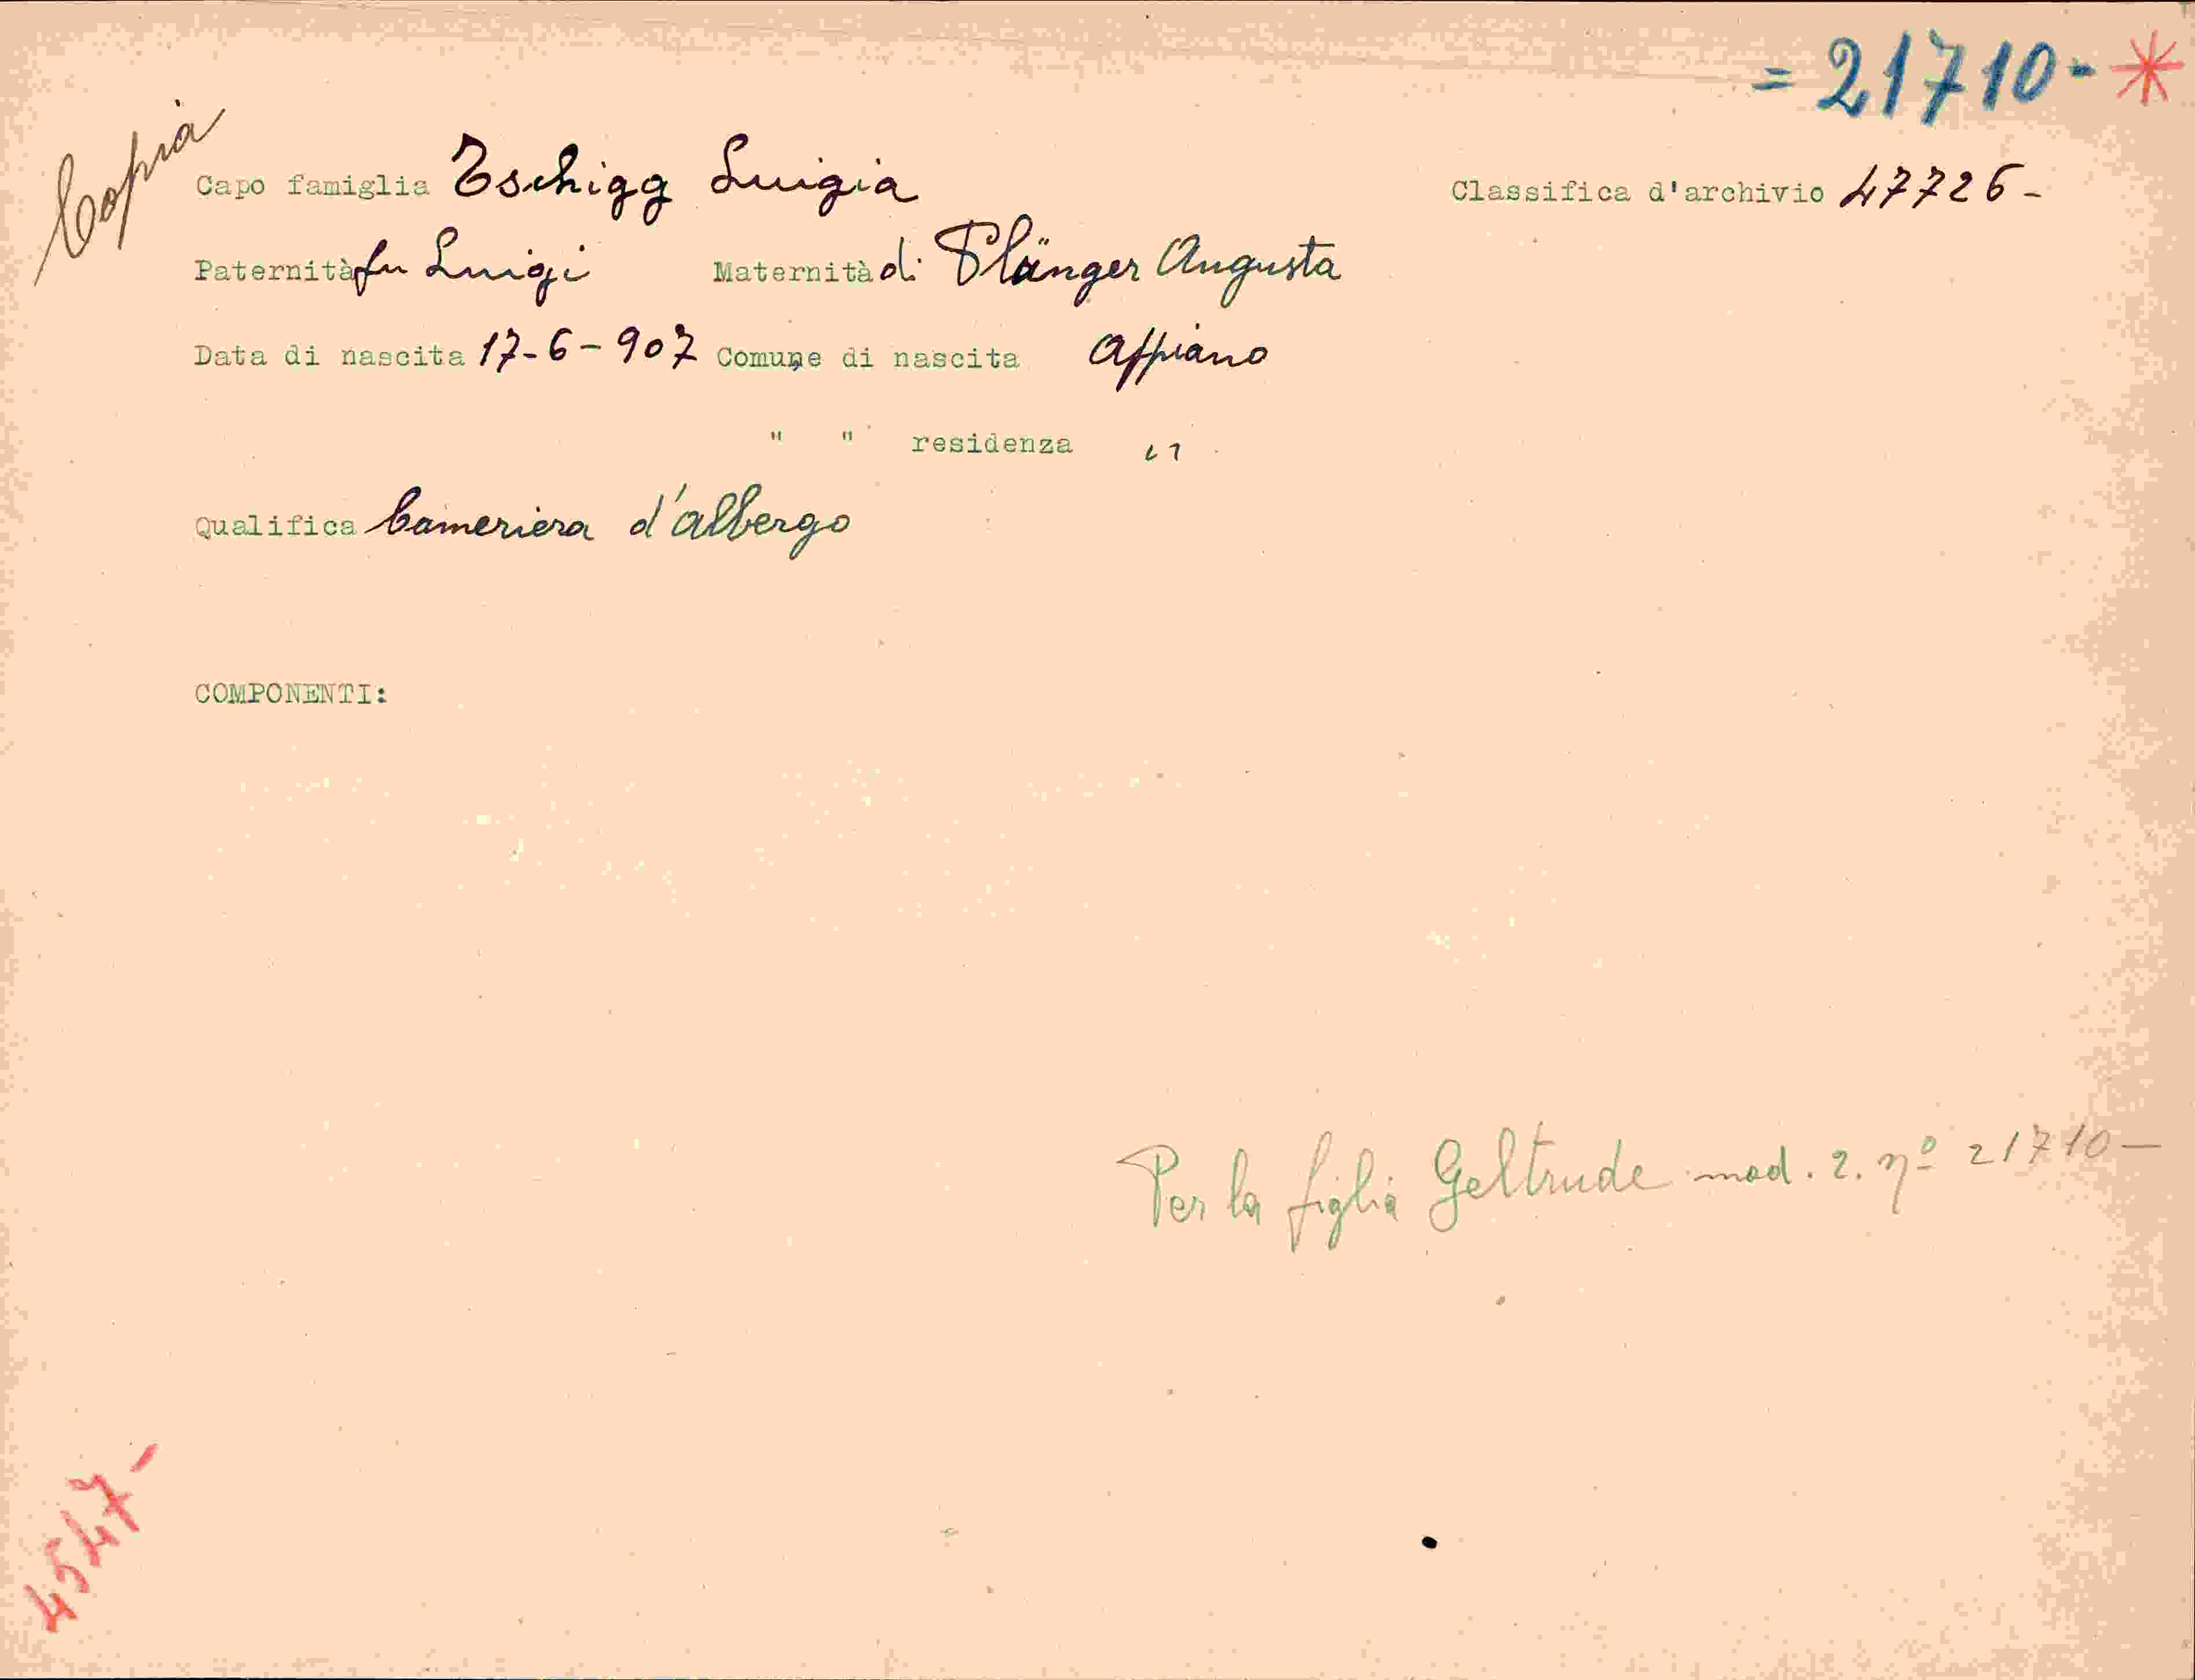 = 21710- *
Copia
Capo famiglia Tschigg Luigia Classifica d'archivio 47726-
Paternità fu Luigi Maternità di Plänger Augusta
Data di nascita 17-6-907 Comune di nascita Appiano
" " residenza "
Qualifica Cameriera d'albergo
COMPONENTI:
Per la figlia Geltrude mod. 2. nº 21710-
4547-